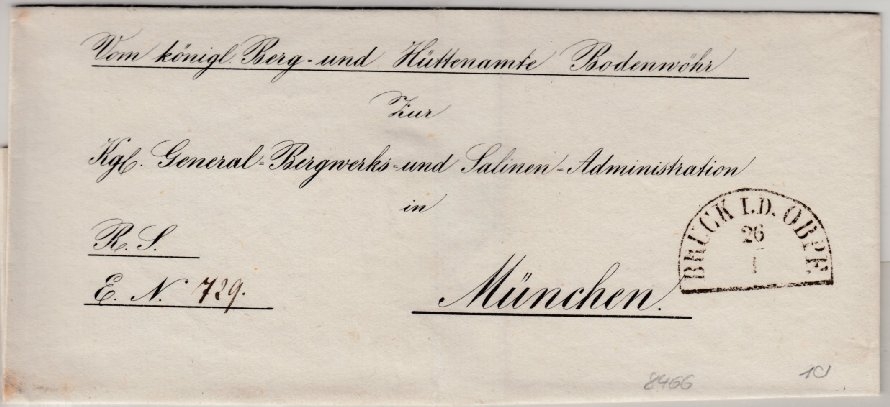 Vom königl. Berg- und Hüttenamte Bodenwöhr
Zur
Kgl. General-Bergwerks-und Salinen-Administration
in
BRUCK I.D. OBPF.
26
1
R. S.
E. N. 729.
München.
8466